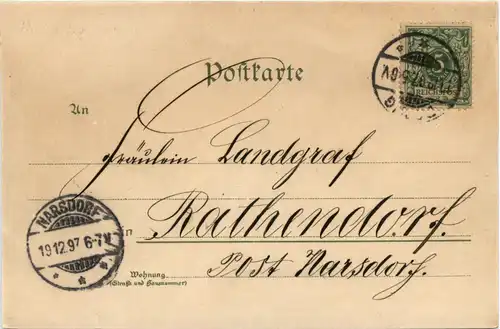 Postkarte
5
REICHSPOST
An
Fräulein Landgraf
in Rathendorf.
Post Narsdorf.
NARSDORF
19.12.97 6-7V
Wohnung
(Straße und Hausnummer)